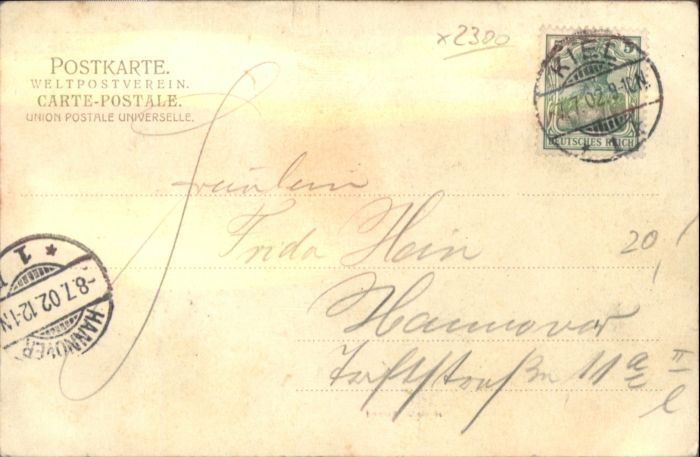 POSTKARTE.
WELTPOSTVEREIN.
CARTE-POSTALE.
UNION POSTALE UNIVERSELLE.
x2300
5 5
KIEL
7.02.9-10N.
* 1
DEUTSCHES REICH
Fräulein
Frida Hein
Hannover
Triftstraße 11 a II
l
20
* 1
-8.7.02.12-1N
HANNOVER